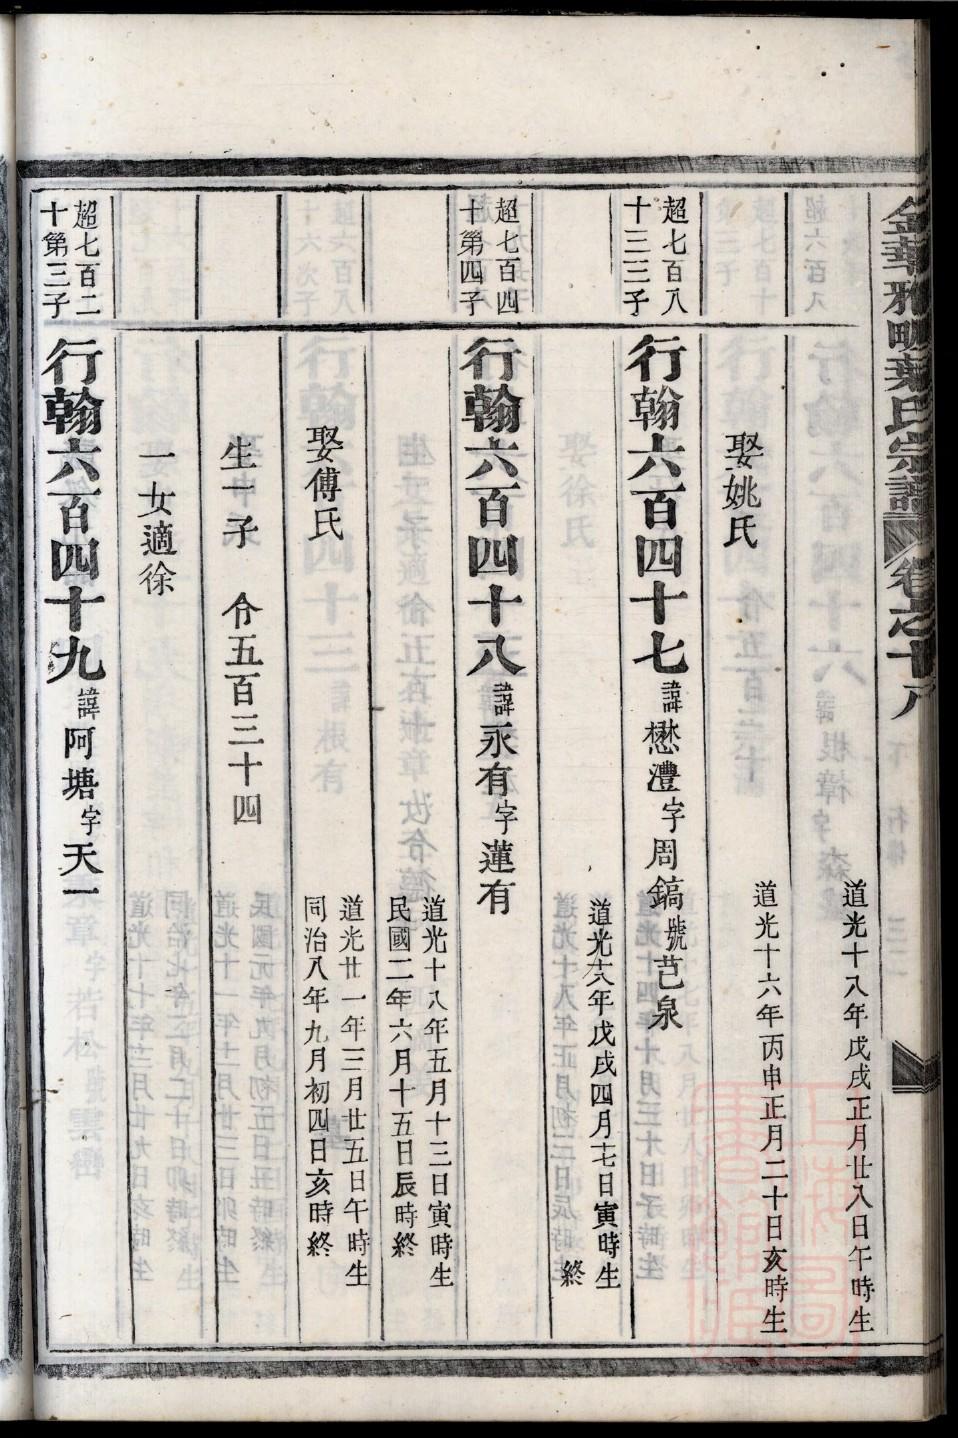 金華雅畈葉氏宗譜 卷之十八
道光十八年戊戌正月廿八日午時生
娶姚氏
道光十六年丙申正月二十日亥時生
超七百八
十三三子
行翰六百四十七 諱懋灃字周鎬號芑泉
道光十八年戊戌四月十七日寅時生
終
超七百四
十第四子
行翰六百四十八 諱永有字蓮有
道光十八年五月十三日寅時生
民國二年六月十五日辰時終
娶傅氏
道光廿一年三月廿五日午時生
同治八年九月初四日亥時終
生一子 令五百三十四
一女適徐
超七百二
十第三子
行翰六百四十九 諱阿塘字天一